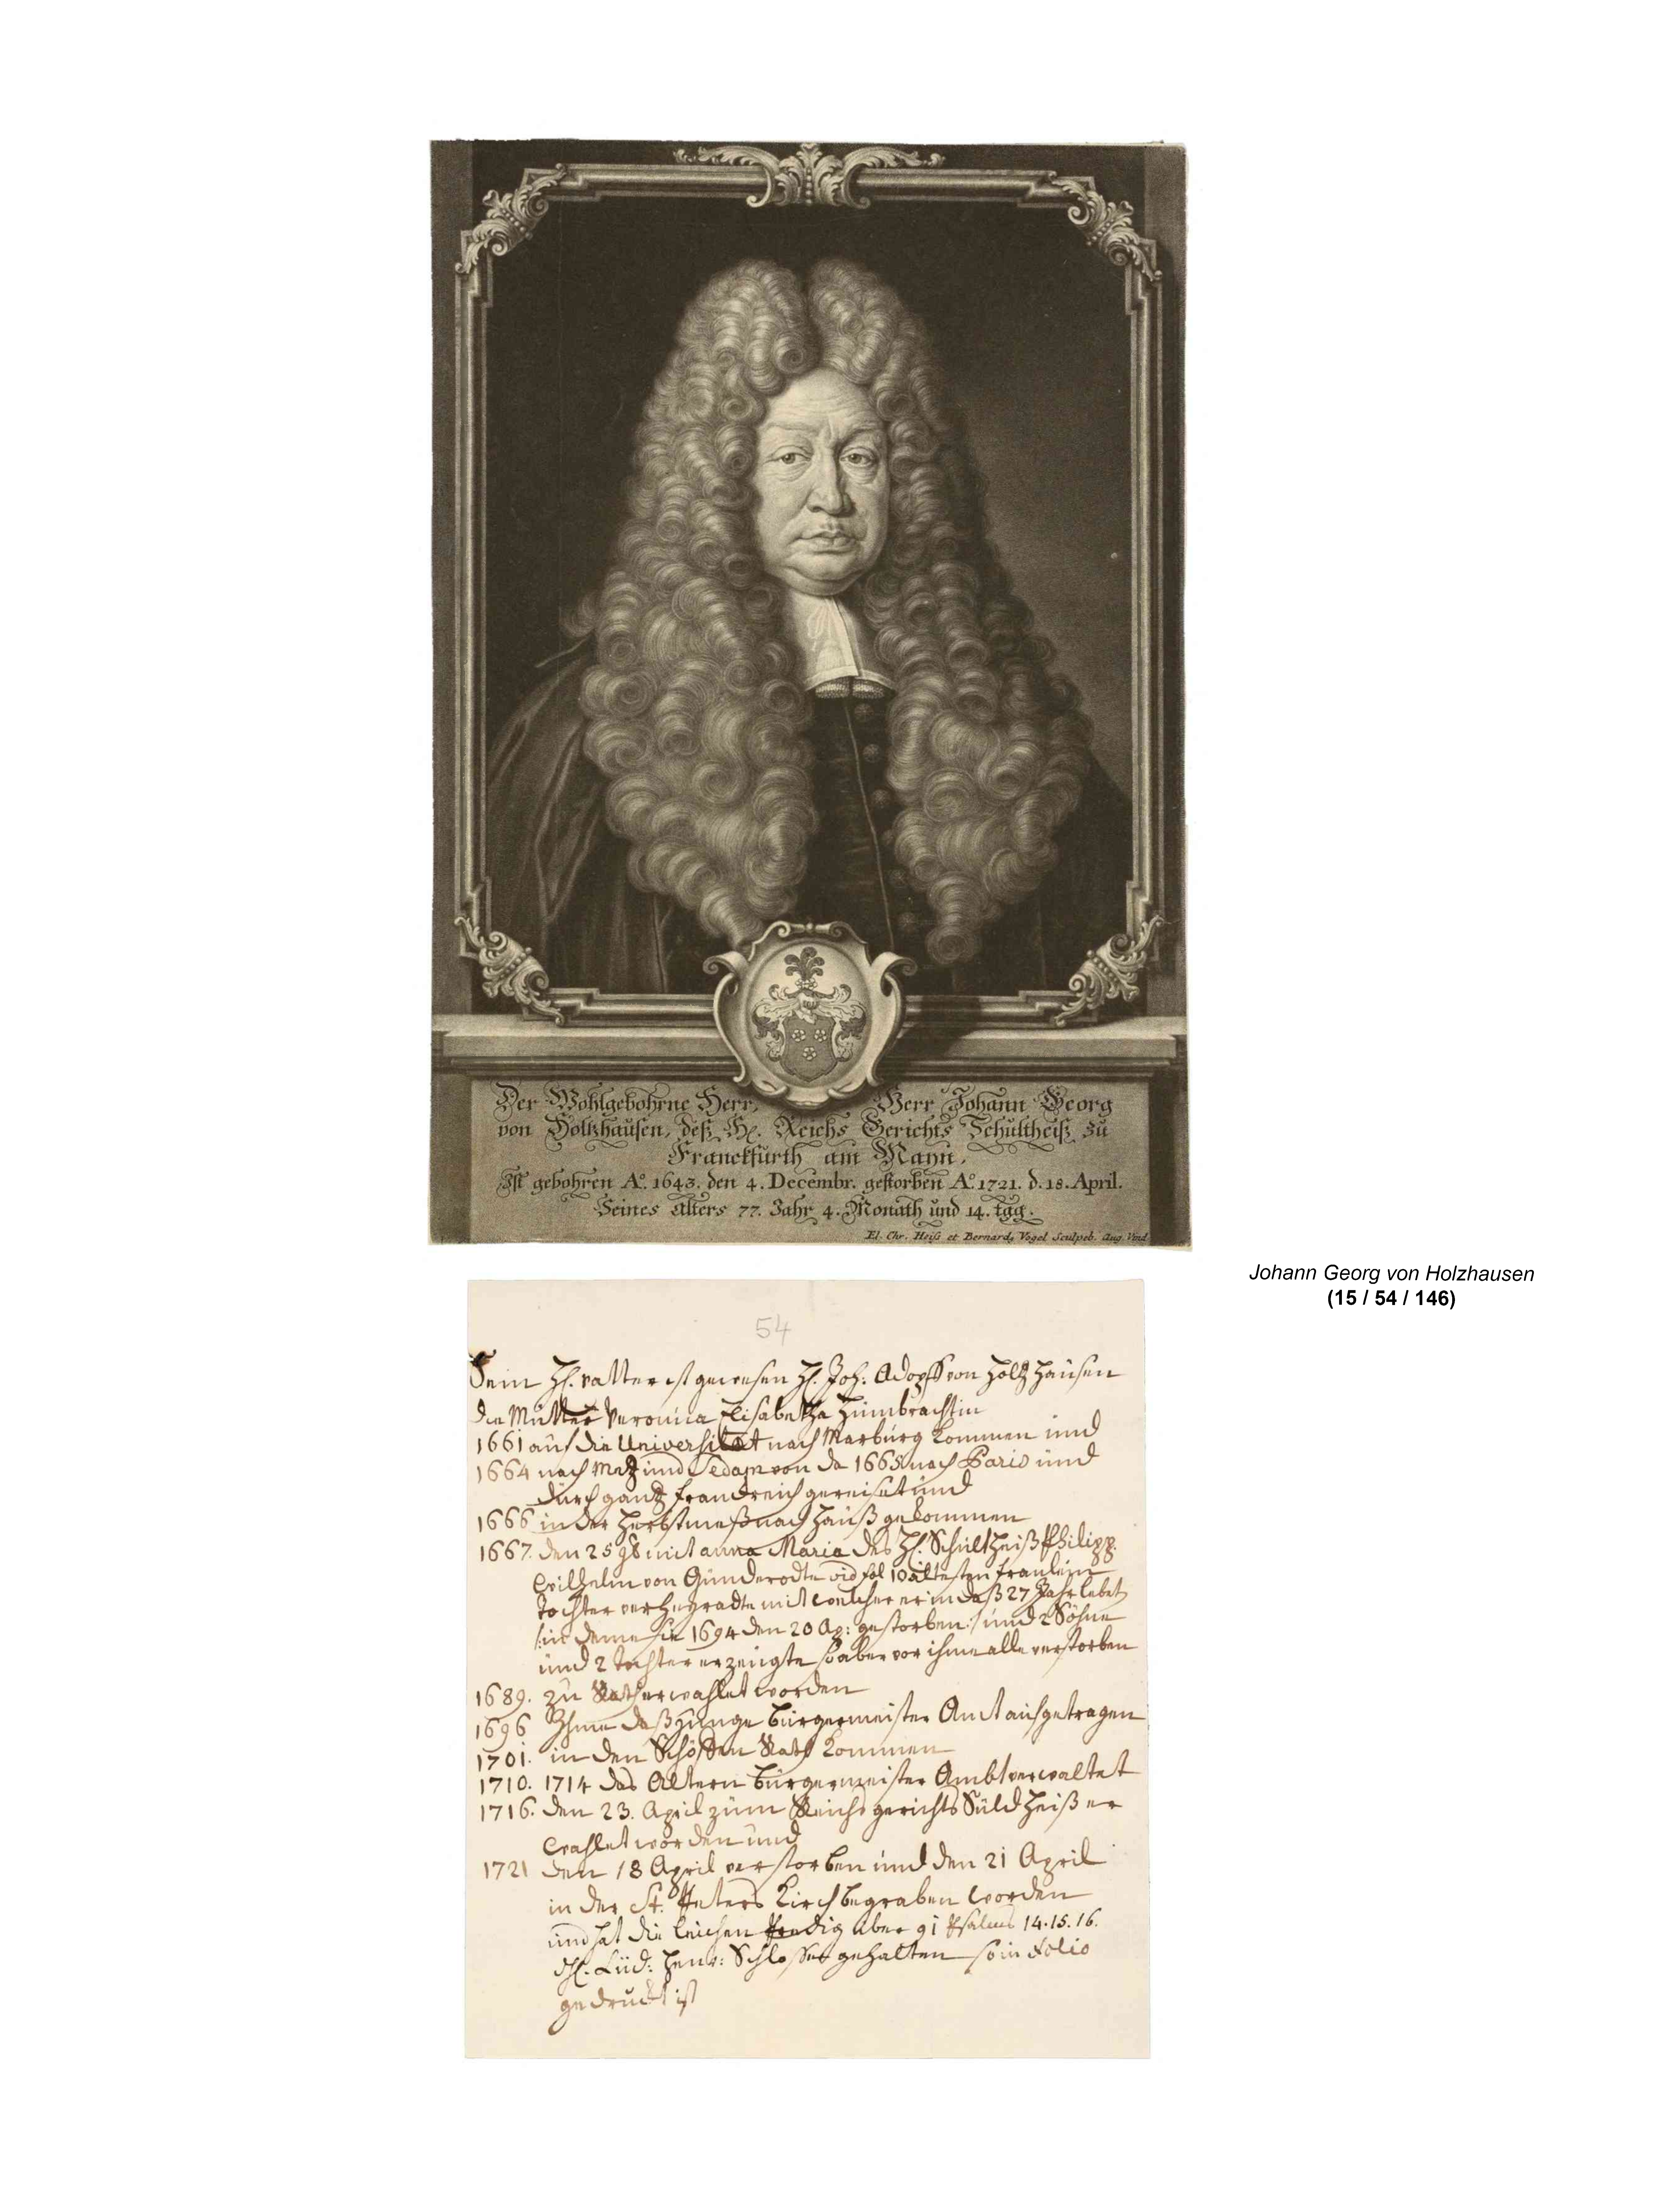 Der Wohlgebohrne Herr, Herr Johann Georg
von Holtzhausen, deß H. Reichs Gerichts Schultheiß zu
Franckfurth am Mayn.
Ist gebohren Aº. 1643. den 4. Decembr. gestorben Aº. 1721. d. 18. April.
Seines Alters 77. Jahr 4. Monath und 14. tag.
El. Chr. Heiß et Bernard, Vogel Sculpsb. Aug. Vind.
Johann Georg von Holzhausen
(15 / 54 / 146)
54
Sein H. vatter ist gewesen H. Joh: Adopff von Holtzhausen
die Mutter Veronica Elisabetha Humbrachtin
1661 auf die Universitat nach Marburg kommen und
1664 nach Metz und Sedan von da 1665 nach Paris und
durch gantz franckreich gereiset und
1666 in der Herbstmeß nach Hauß gekommen
1667. den 25 mit anna Maria des H. Schultheiß Philipp
Wilhelm von Günderodte vid fol 10 altesten fraulein
Tochter verheyradte mit welcher er in daß 27 Jahr lebet
in deme sie 1694 den 20 Ap: gestorben: und 2 Söhne
und 2 tochter erzeugte so aber vor ihme alle verstorben
1689. zu Rath erwahlet worden
1696 Ihme daß Junge bürgermeister Amt aufgetragen
1701. in den Schöffen Rath kommen
1710. 1714 das Altern bürgermeister Ambt verwaltet
1716. den 23. April zum Reichs gerichts Süldheiß er
wahlet worden und
1721 den 18 April verstorben und den 21 April
in der St. Peters Kirch begraben worden
und hat die leichen Predig über 91 Psalm 14.15.16.
H. Lud: Henr: Schlosser gehalten so in Folio
gedruckt ist